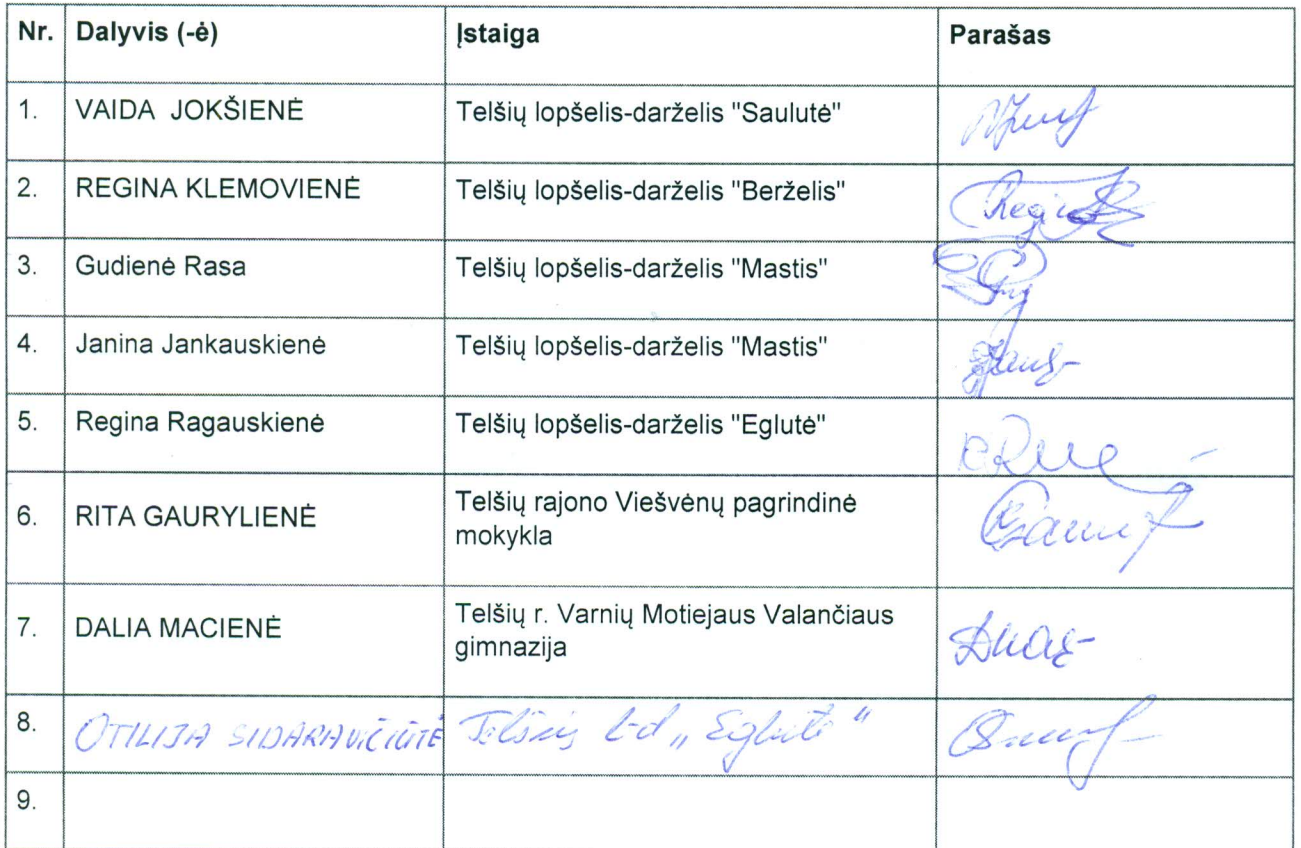 Nr. Dalyvis (-ė) Įstaiga Parašas
1. VAIDA JOKŠIENĖ Telšių lopšelis-darželis "Saulutė"
2. REGINA KLEMOVIENĖ Telšių lopšelis-darželis "Berželis"
3. Gudienė Rasa Telšių lopšelis-darželis "Mastis"
4. Janina Jankauskienė Telšių lopšelis-darželis "Mastis"
5. Regina Ragauskienė Telšių lopšelis-darželis "Eglutė"
6. RITA GAURYLIENĖ Telšių rajono Viešvėnų pagrindinė
mokykla
7. DALIA MACIENĖ Telšių r. Varnių Motiejaus Valančiaus
gimnazija
8. OTILIJA SIDARAVIČIŪTĖ Telšių l-d „Eglutė“
9.